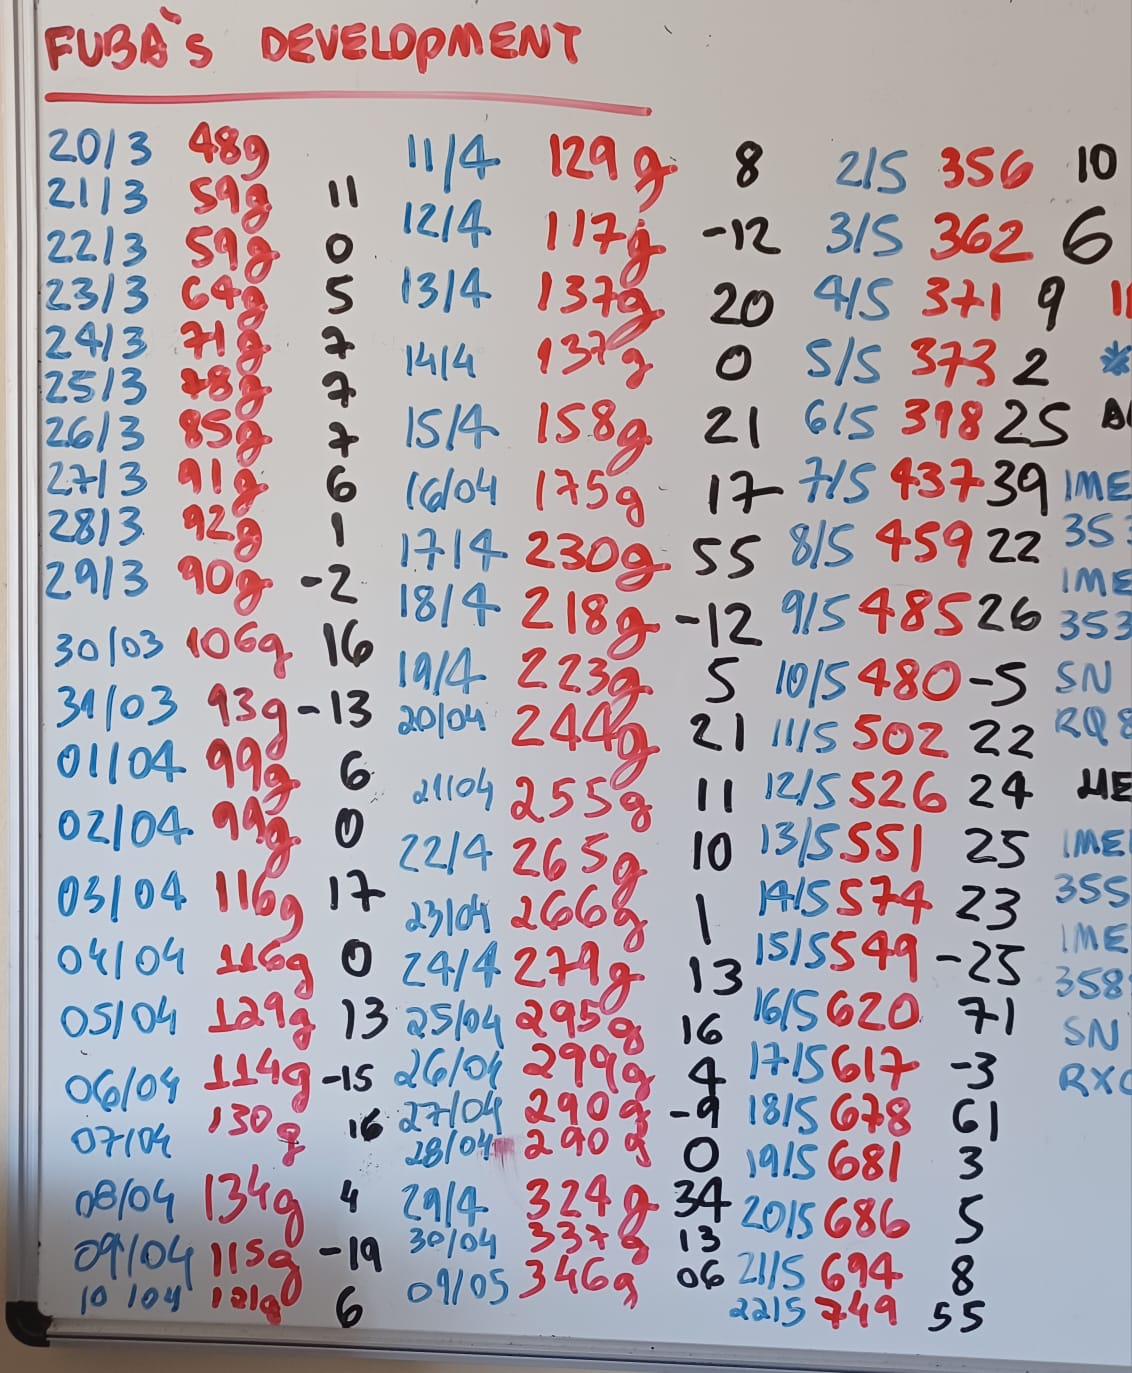 FUBA`S DEVELOPMENT
20/3 48g
21/3 59g 11
22/3 59g 0
23/3 64g 5
24/3 71g 7
25/3 78g 7
26/3 85g 7
27/3 91g 6
28/3 92g 1
29/3 90g -2
30/03 106g 16
31/03 93g -13
01/04 99g 6
02/04 99g 0
03/04 116g 17
04/04 116g 0
05/04 129g 13
06/04 114g -15
07/04 130g 16
08/04 134g 4
09/04 115g -19
10/04 121g 6
11/4 129g 8
12/4 117g -12
13/4 137g 20
14/4 137g 0
15/4 158g 21
16/04 175g 17
17/4 230g 55
18/4 218g -12
19/4 223g 5
20/04 244g 21
21/04 255g 11
22/4 265g 10
23/04 266g 1
24/4 279g 13
25/04 295g 16
26/04 299g 4
27/04 290g -9
28/04 290g 0
29/4 324g 34
30/04 337g 13
09/05 346g 06
2/5 356 10
3/5 362 6
4/5 371 9
5/5 373 2
6/5 398 25
7/5 437 39
8/5 459 22
9/5 485 26
10/5 480 -5
11/5 502 22
12/5 526 24
13/5 551 25
14/5 574 23
15/5 549 -25
16/5 620 71
17/5 617 -3
18/5 678 61
19/5 681 3
20/5 686 5
21/5 694 8
22/5 749 55
*
IME
353
IME
353
SN
RQ8
ME
IMEI
355
IME
358
SN
RXC